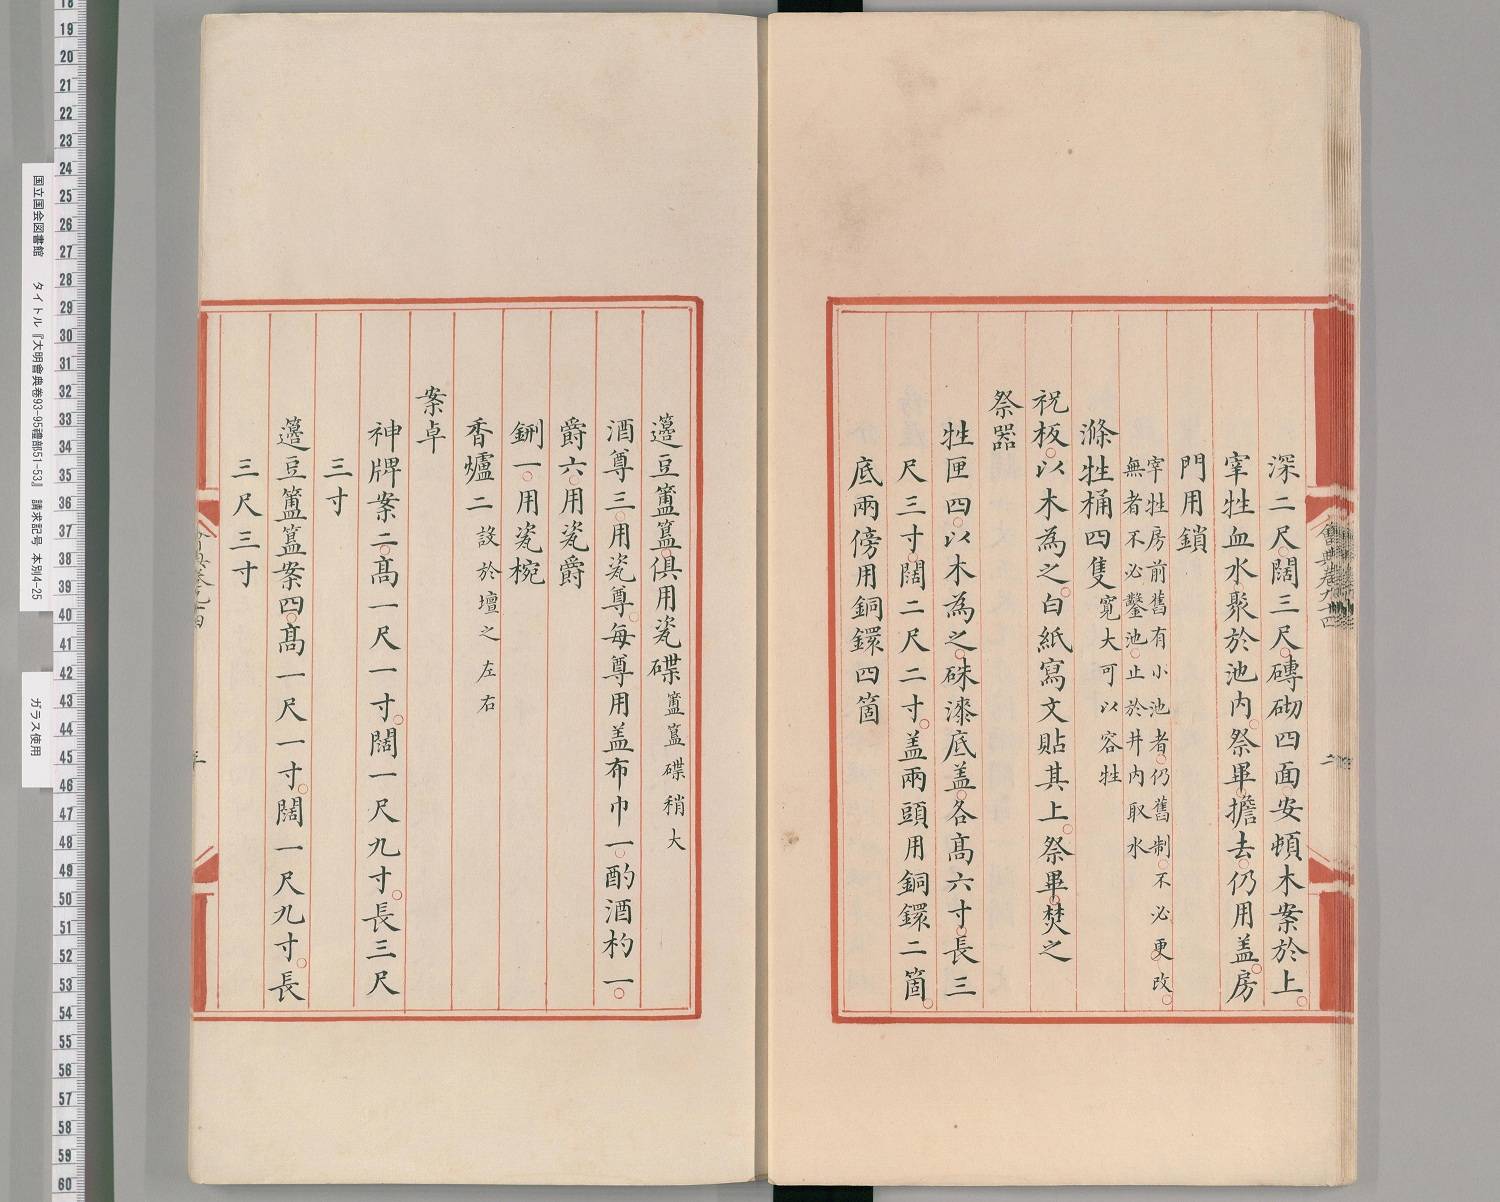 深二尺闊三尺磚砌四面安頓木案於上
宰牲血水聚於池内祭畢擔去仍用盖房
門用鎖
宰牲房前舊有小池者仍舊制不必更改
無者不必鑿池止於井内取水
滌牲桶四隻寛大可以容牲
祝板以木為之白紙寫文貼其上祭畢焚之
祭器
牲匣四以木為之硃漆底盖各髙六寸長三
尺三寸闊二尺二寸盖兩頭用銅鐶二箇
底兩傍用銅鐶四箇
籩豆簠簋俱用瓷碟簠簋碟稍大
酒尊三用瓷尊每尊用盖布巾一酌酒杓一
爵六用瓷爵
鉶一用瓷椀
香爐二設於壇之左右
案卓
神牌案二髙一尺一寸闊一尺九寸長三尺
三寸
籩豆簠簋案四髙一尺一寸闊一尺九寸長
三尺三寸
會典卷九十四
二
国立国会図書館 タイトル『大明會典巻93-95禮部51-53』 請求記号 本別4-25
ガラス使用
18
19
20
21
22
23
24
25
26
27
28
29
30
31
32
33
34
35
36
37
38
39
40
41
42
43
44
45
46
47
48
49
50
51
52
53
54
55
56
57
58
59
60